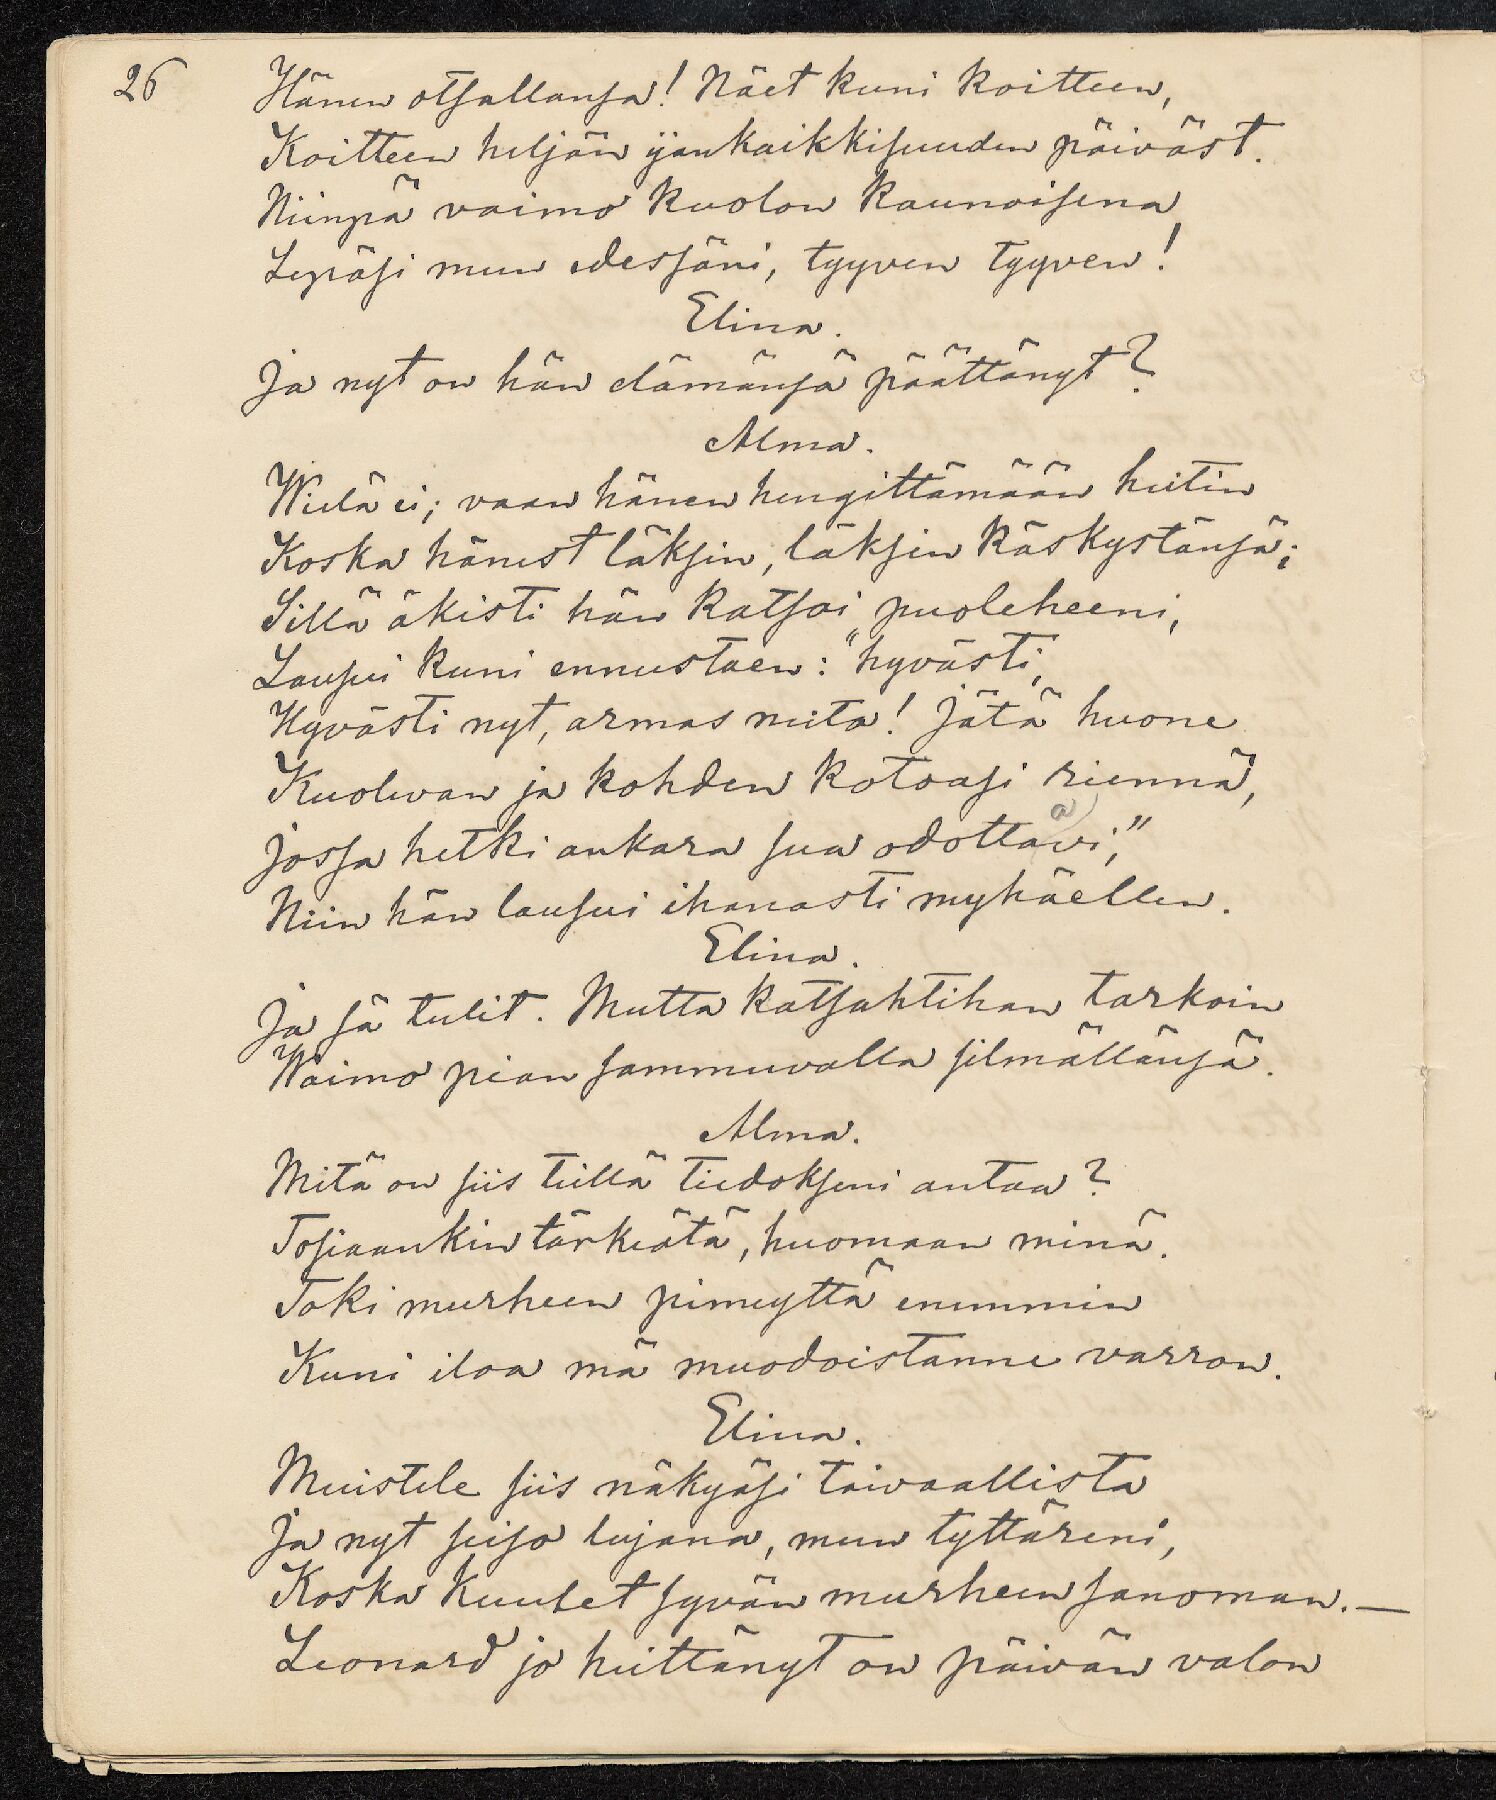 26
Hänen otsallansa! Näet kuni koitteen,
Koitteen heljän ijankaikkisuuden päiväst.
Niinpä vaimo kuolon kaunoisena
Lepäsi mun edessäni, tyyven tyyven!
Elina.
Ja nyt on hän elämänsä päättänyt?
Alma.
Wielä ei; vaan hänen hengittämään heitin
Koska hänest läksin, läksin käskystänsä;
Sillä äkisti hän katsoi puoleheeni,
Lausui kuni ennustaen: "hyvästi,
Hyvästi nyt, armas neito! Jätä huone
Kuolevan ja kohden kotoasi riennä,
Jossa hetki ankara sua odottaavi,"
Niin hän lausui ihanasti myhäellen.
Elina.
Ja sä tulit. Mutta katsahtihan tarkoin
Waimo pian sammuvalla silmällänsä.
Alma.
Mitä on siis teillä tiedokseni antaa?
Tosiaankin tärkeätä, huomaan minä.
Toki murheen pimeyttä enimmin
Kuni iloa mä muodoistanne varron.
Elina.
Muistele siis näkyäsi taivaallista
Ja nyt seiso lujana, mun tyttäreni,
Koska kuulet syvän murheen sanoman. —
Leonard jo heittänyt on päivän valon